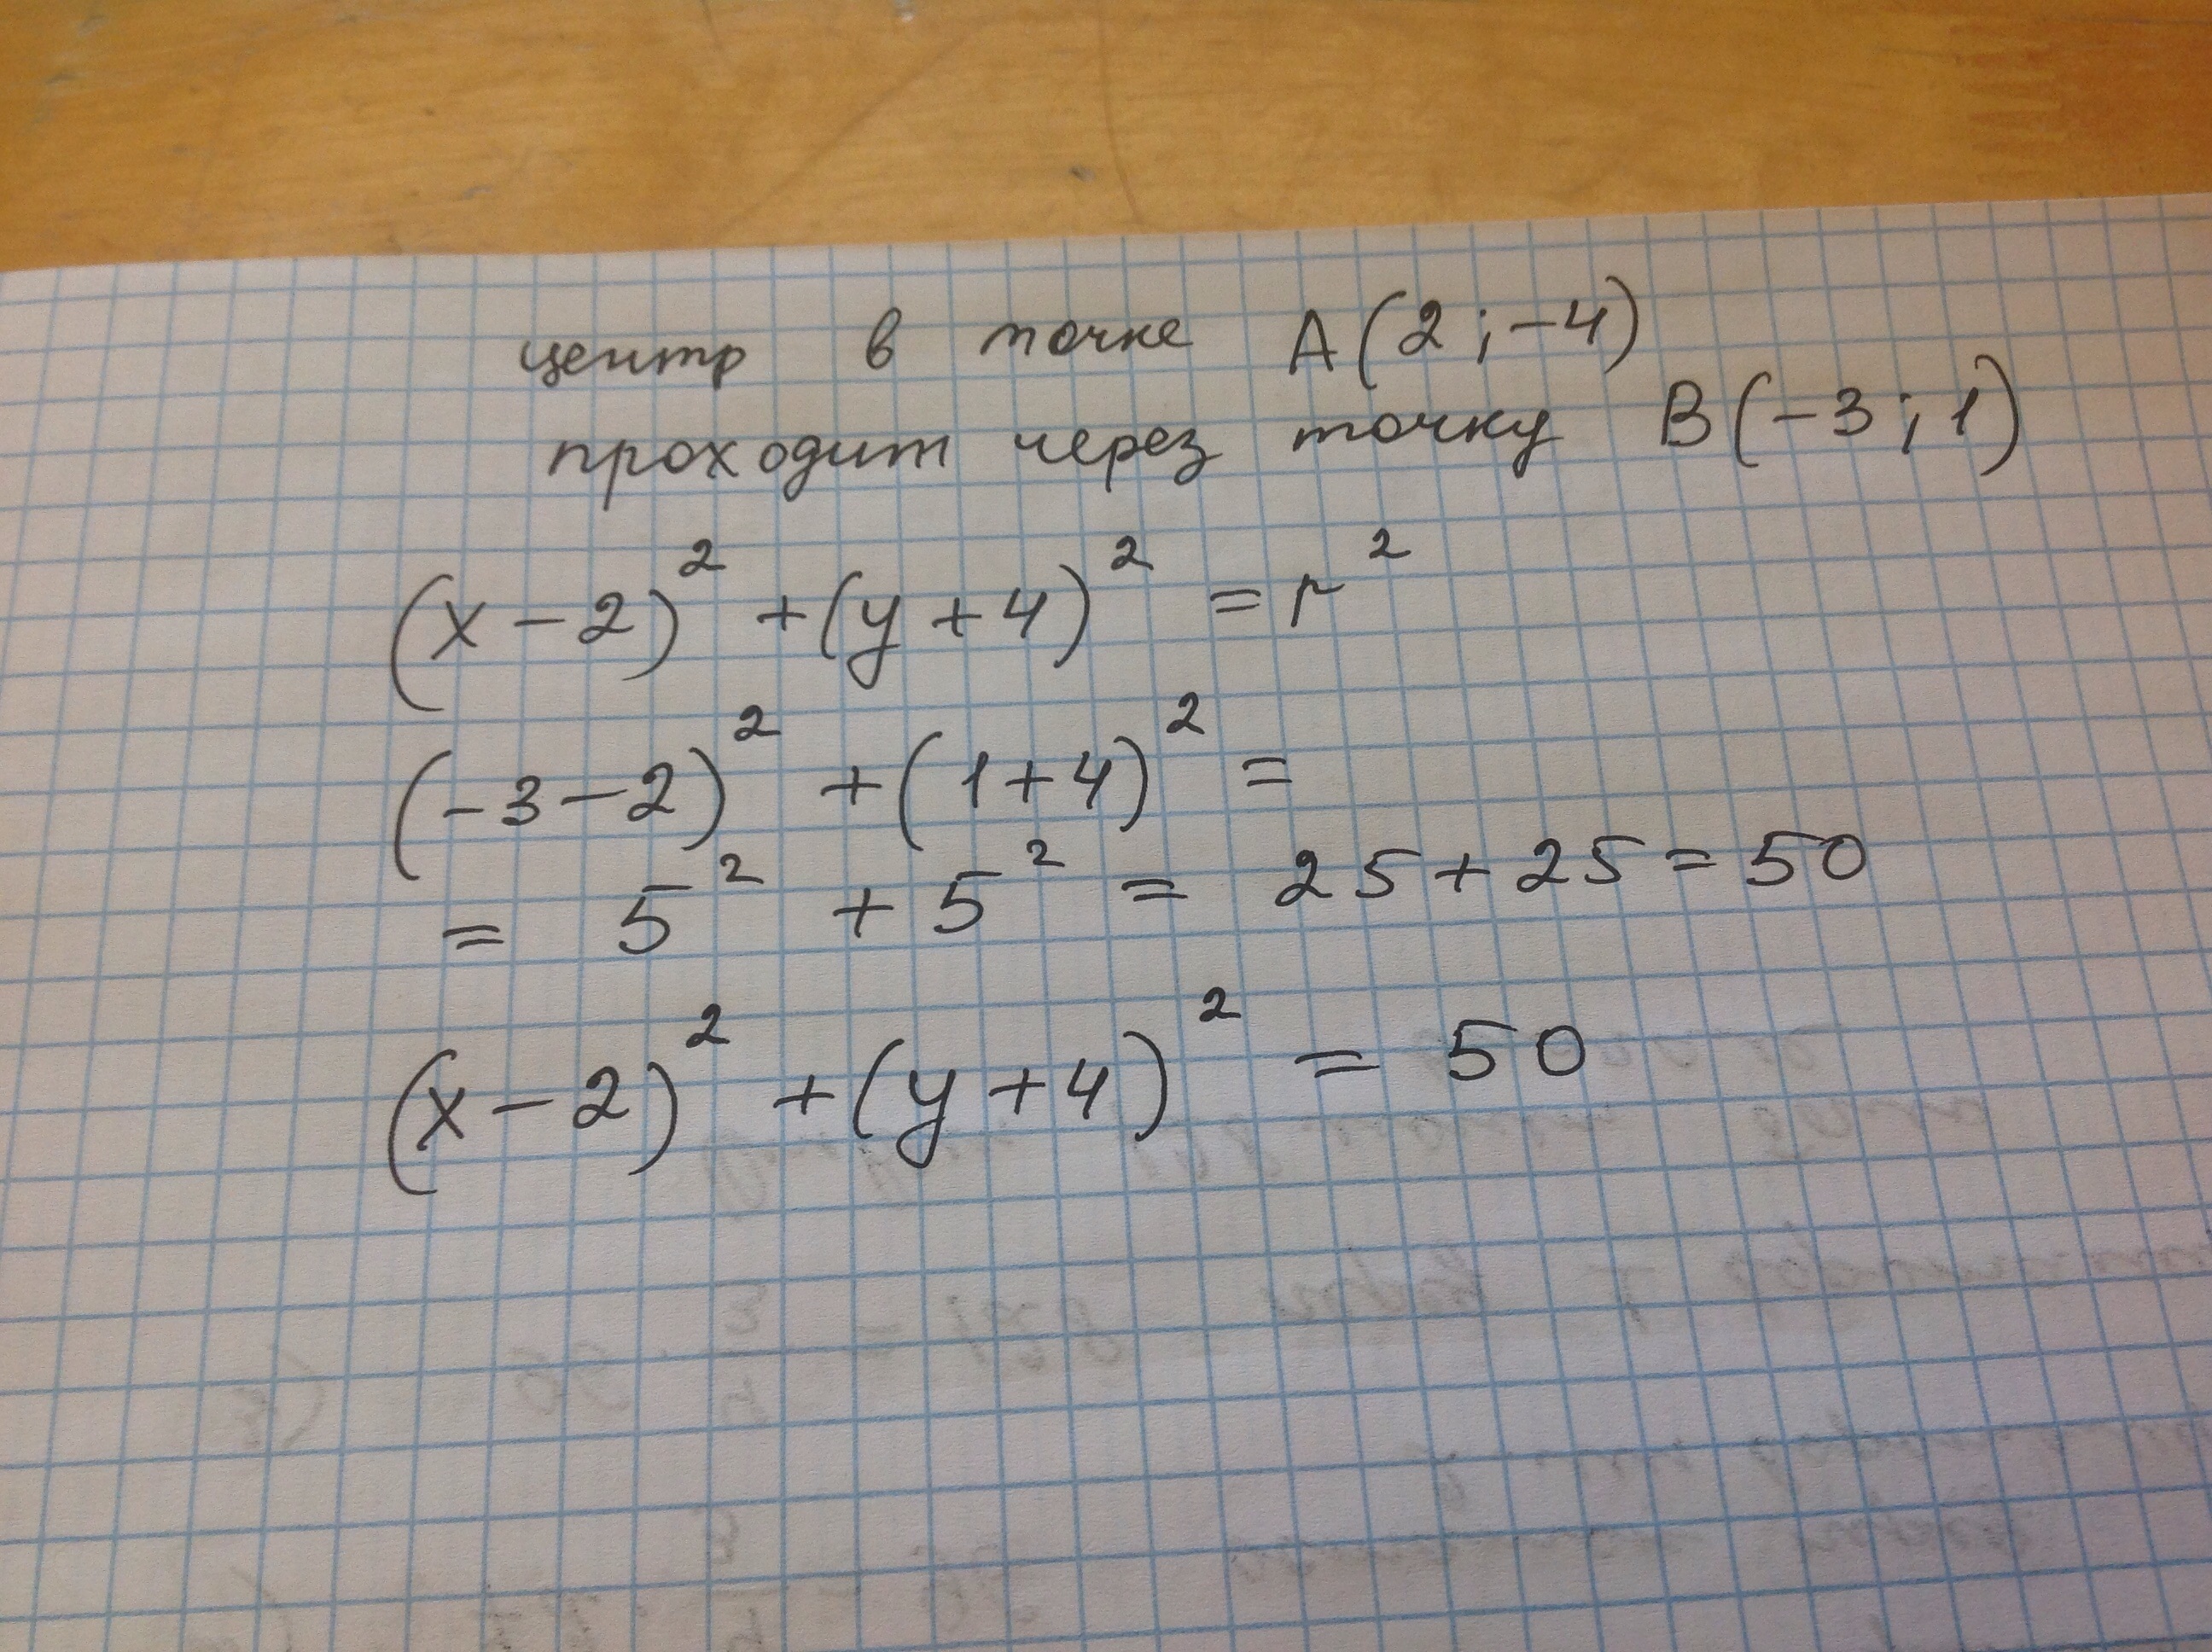 центр в точке A(2;-4)
проходит через точку B(-3;1)
(x-2)² +(y+4)² = r²
(-3-2)² +(1+4)² =
= 5² + 5² = 25+25=50
(x-2)² +(y+4)² = 50